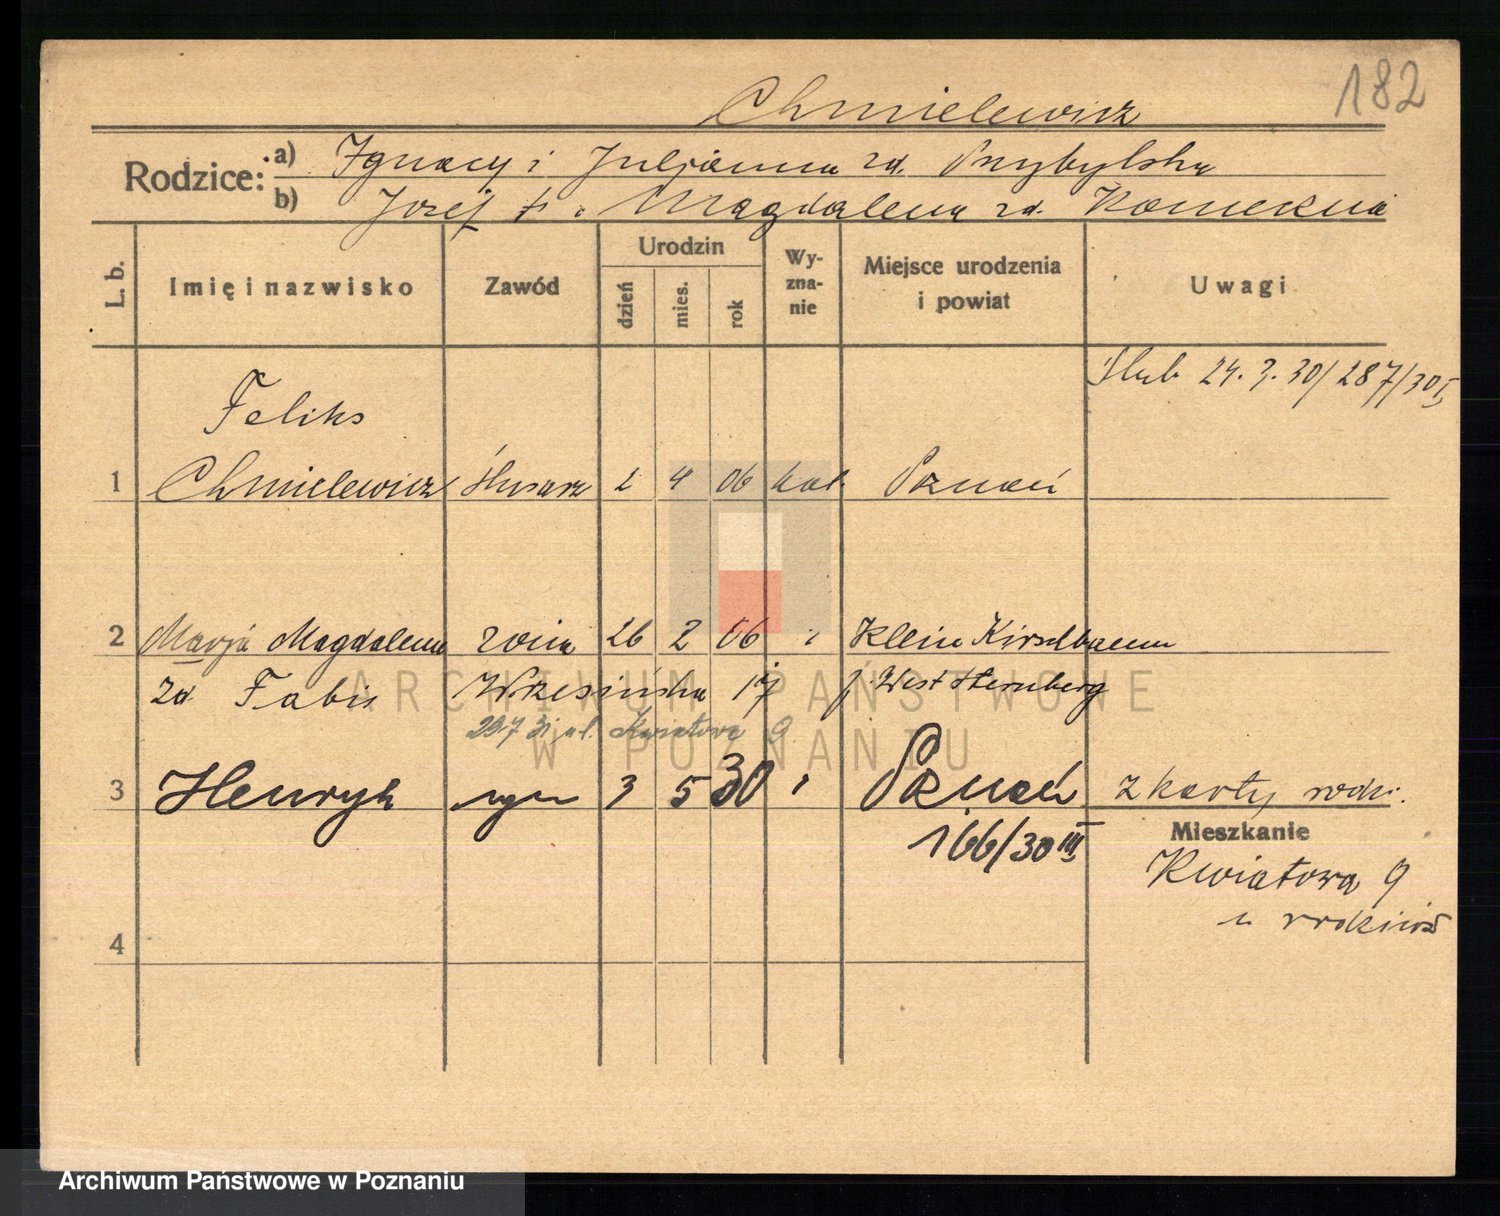 182
Chmielewicz
Rodzice: a) Ignacy i Juljanna zd. Przybylska
b) Józef † i Magdalena zd. Konieczna
L. b.
Imię i nazwisko
Zawód
Urodzin
dzień
mies.
rok
Wy-
zna-
nie
Miejsce urodzenia
i powiat
Uwagi
Ślub 24. 3. 30/287/30 I
Feliks
1 Chmielewicz ślusarz 2 4 06 kat. Poznań
2 Marja Magdalena żona 26 2 06 Klein Kirschbaum
zd Fabis Wrzesińska 17 p. West Sternberg
29 7 31 ul. Kwiatowa 9
3 Henryk syn 3 5 30 Poznań z karty rodz.
166/30 III
Mieszkanie
Kwiatowa 9
u rodziców
4
ARCHIWUM PAŃSTWOWE
W POZNANIU
Archiwum Państwowe w Poznaniu